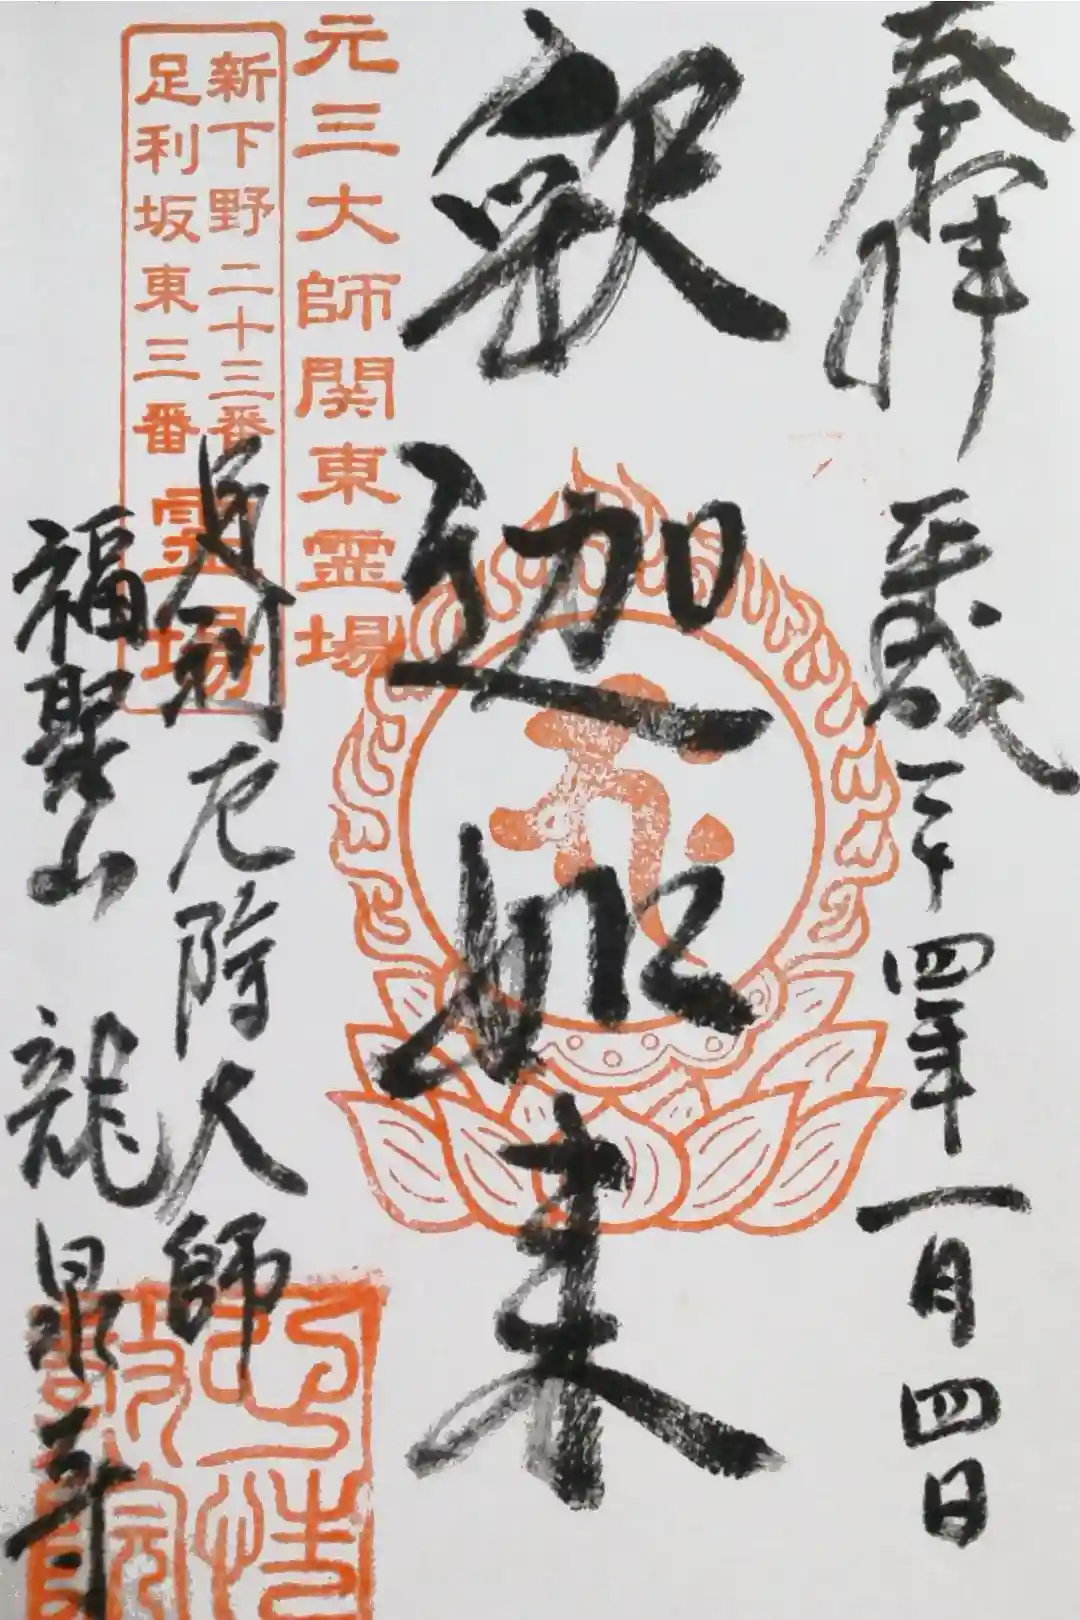 奉拝
平成二十四年一月四日
釈迦如来
元三大師関東霊場
新下野二十三番
足利坂東三番
霊場
足利厄除大師
福聖山 龍泉寺